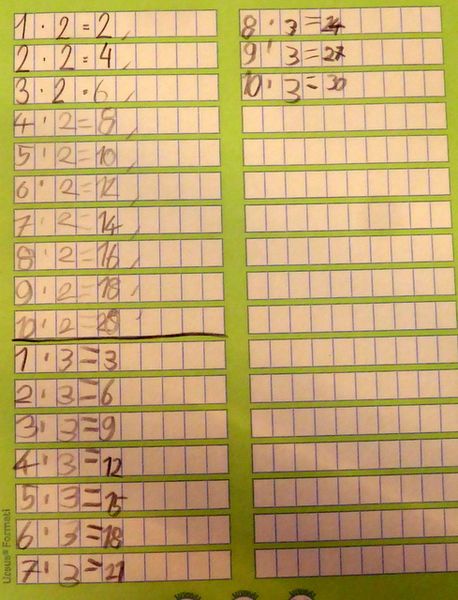 1 · 2 = 2
2 · 2 = 4
3 · 2 = 6
4 · 2 = 8
5 · 2 = 10
6 · 2 = 12
7 · 2 = 14
8 · 2 = 16
9 · 2 = 18
10 · 2 = 20
1 · 3 = 3
2 · 3 = 6
3 · 3 = 9
4 · 3 = 12
5 · 3 = 15
6 · 3 = 18
7 · 3 = 21
8 · 3 = 24
9 · 3 = 27
10 · 3 = 30
Ursus® Formati